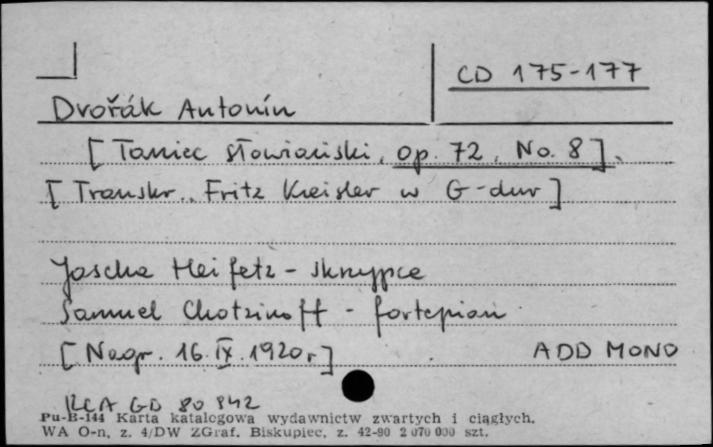 CD 175-177
Dvořák Antonín
[Taniec słowiański, op. 72, No. 8].
[Transkr. Fritz Kreisler w G-dur]
Jascha Heifetz - skrzypce
Samuel Chotzinoff - fortepian
[Nagr. 16.IX.1920r]
ADD MONO
RCA GD 80 942
Pu-B-144 Karta katalogowa wydawnictw zwartych i ciągłych.
WA O-n, z. 4/DW ZGraf. Biskupiec, z. 42-90 2 070 000 szt.